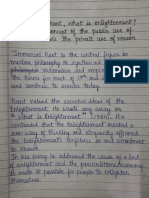 Kant, What is enlightenment?
concept of the public use of
the private use of reason
Immanuel Kant is the central figure in
modern philosophy. He synthesised
rationalism and empiricism
the term for much of 19th and
and continue to exercise today
Kant valued the essential ideas of the
Enlightenment. He wrote essay on
What is Enlightenment? (1784). He
contended that the Enlightenment marked a
new way of thinking and eloquently affirmed
the Enlightenment's confidence in and commitment
to reason.
In his essay he addressed the causes of a lack
of enlightenment and the preconditions necessary
to make it possible for people to enlighten
themselves.